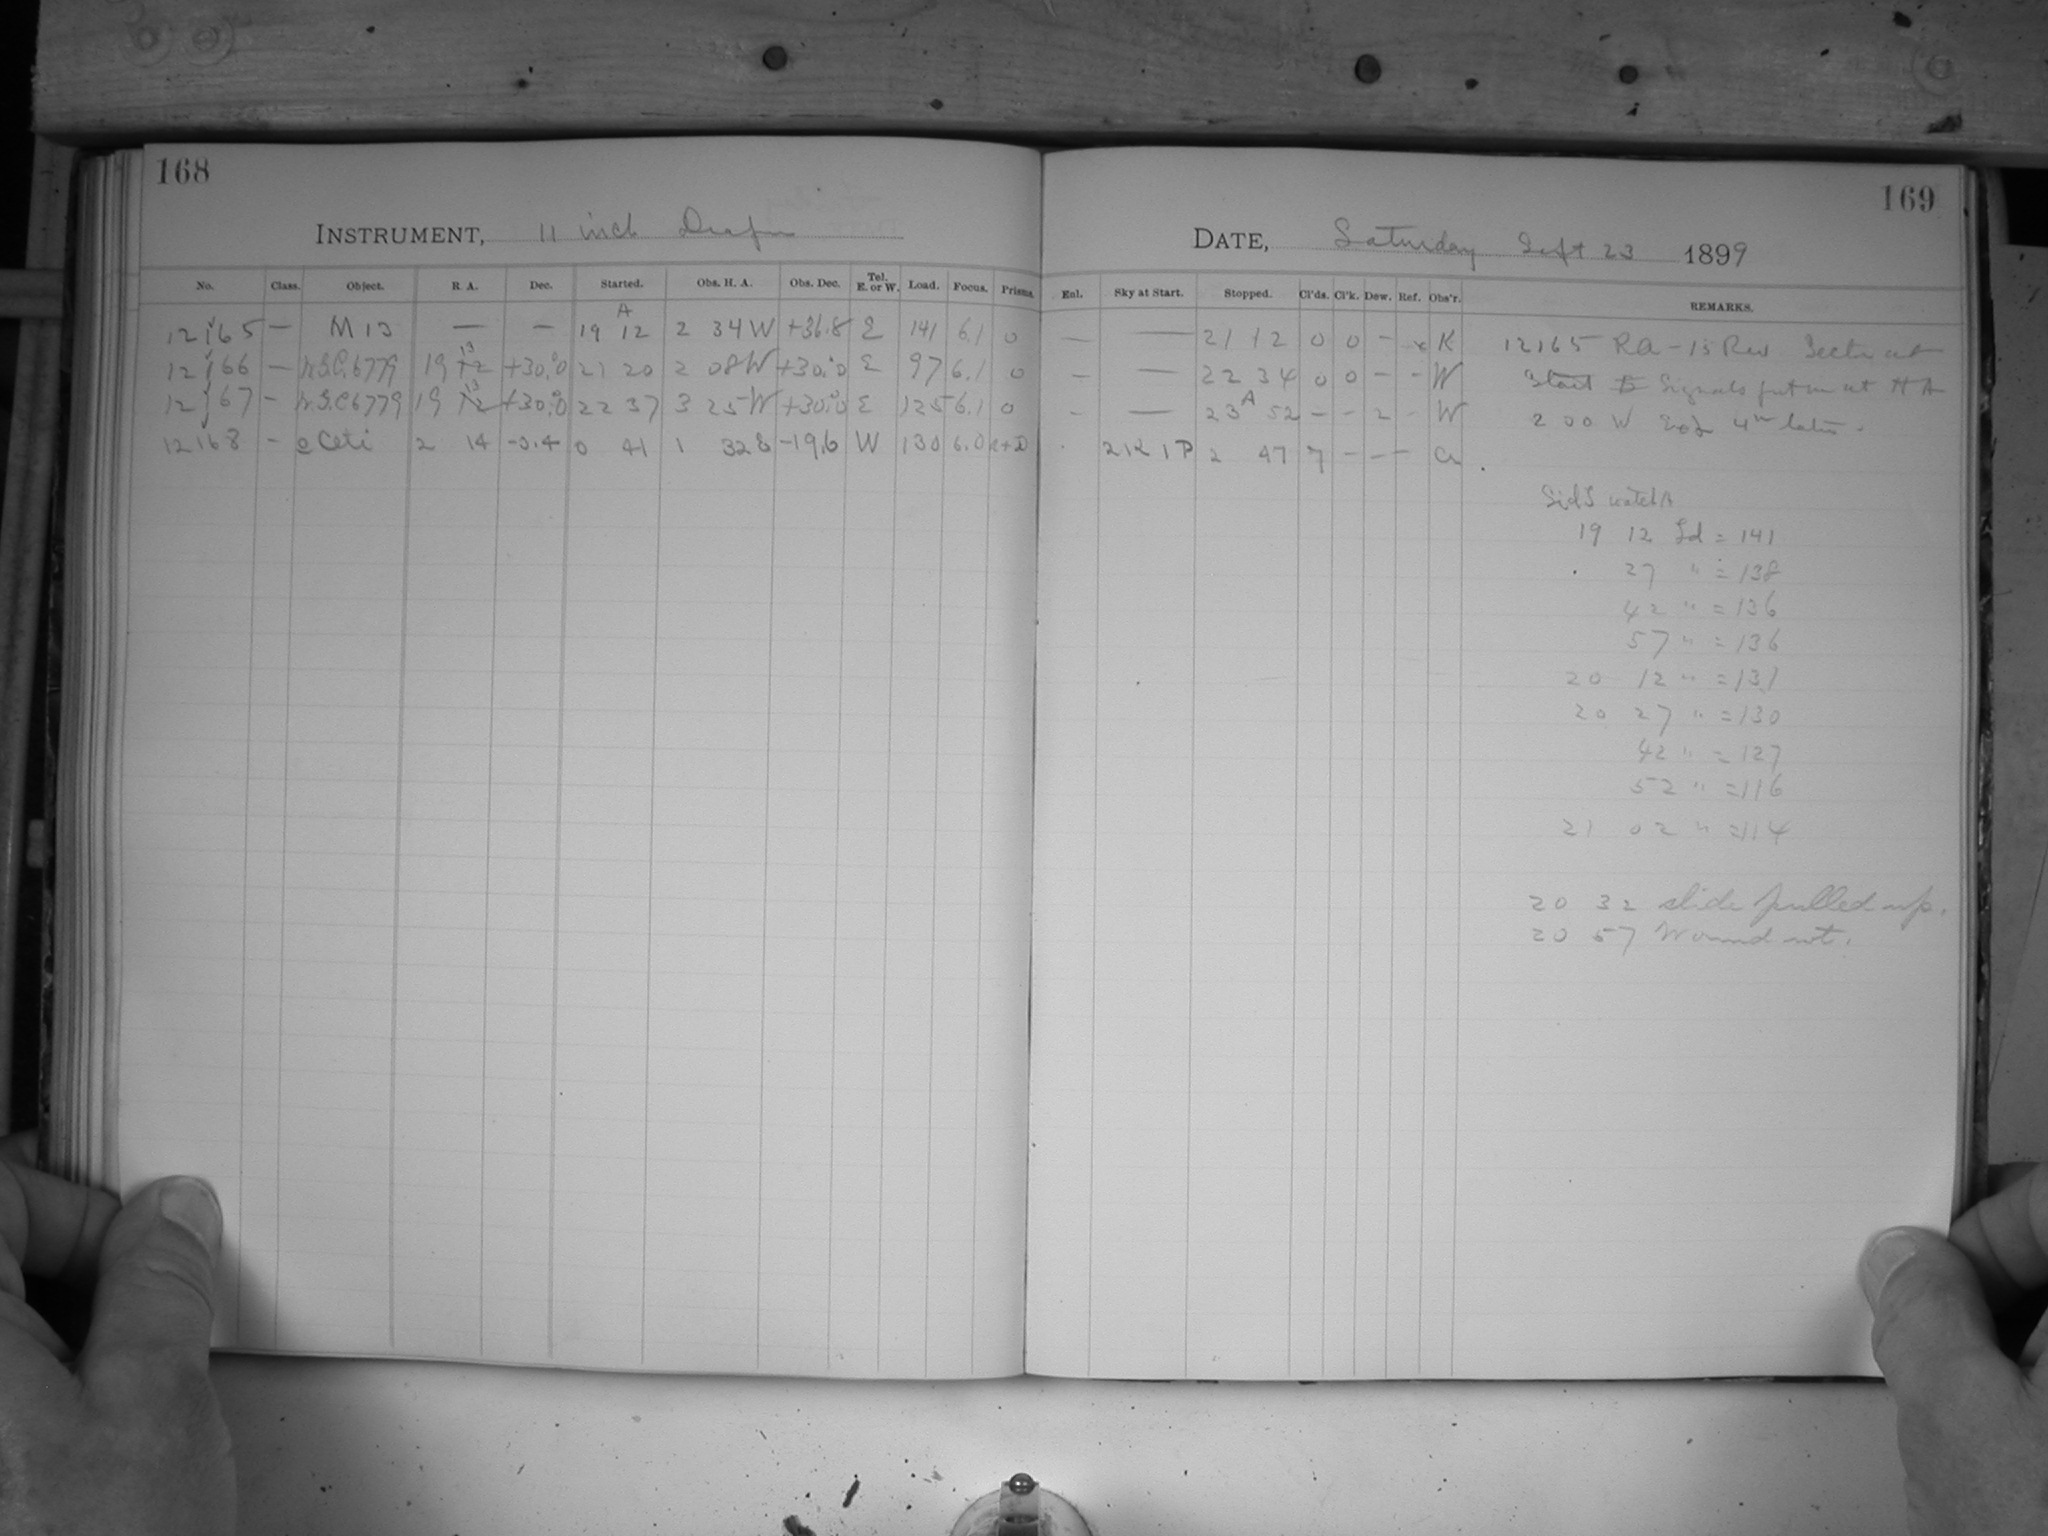 168
INSTRUMENT, 11 inch Draper
No. Class. Object. R. A. Dec. Started. Obs. H. A. Obs. Dec. Tel. E. or W. Load. Focus. Prisms.
A
12165 — M 13 — — 19 12 2 34 W +36.8 E 141 6.1 0
13
12166 — N.G.C. 6779 19 12 +30.0 21 20 2 08 W +30.0 E 97 6.1 0
13
12167 - N.G.C 6779 19 12 +30.0 22 37 3 25 W +30.0 E 125 6.1 0
12168 - o Ceti 2 14 -3.4 0 41 1 32 E -19.6 W 130 6.0
169
DATE, Saturday Sept 23 1899
Enl. Sky at Start. Stopped. Cl'ds. Cl'k. Dew. Ref. Obs'r. REMARKS.
— — 21 12 0 0 - K 12165 RA - 15 Rev
- — 22 34 0 0 - - W Start Signals put in at HA
- — 23 A 52 - - 2 - W 2 00 W 4m later.
2 K 1 P 2 47 7 - - -
watch
19 12 Ld = 141
27 " = 138
42 " = 136
57 " = 136
20 12 " = 131
20 27 " = 130
42 " = 127
52 " = 116
21 02 " = 114
20 32 slide pulled up.
20 57 Wound